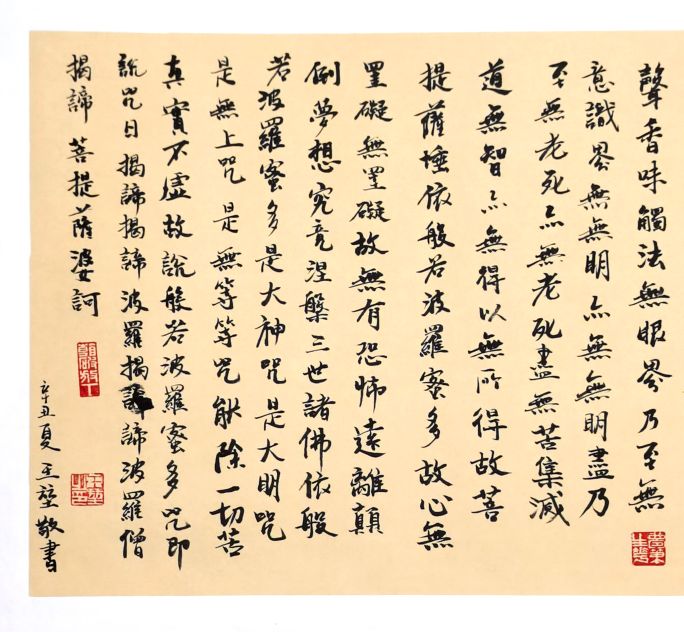 聲香味觸法無眼界乃至無
意識界無無明亦無無明盡乃
至無老死亦無老死盡無苦集滅
道無智亦無得以無所得故菩
提薩埵依般若波羅蜜多故心無
罣礙無罣礙故無有恐怖遠離顛
倒夢想究竟涅槃三世諸佛依般
若波羅蜜多是大神咒是大明咒
是無上咒是無等等咒能除一切苦
真實不虛故說般若波羅蜜多咒即
說咒曰揭諦揭諦波羅揭諦波羅僧
揭諦 菩提薩婆訶
辛丑夏 王 敬書